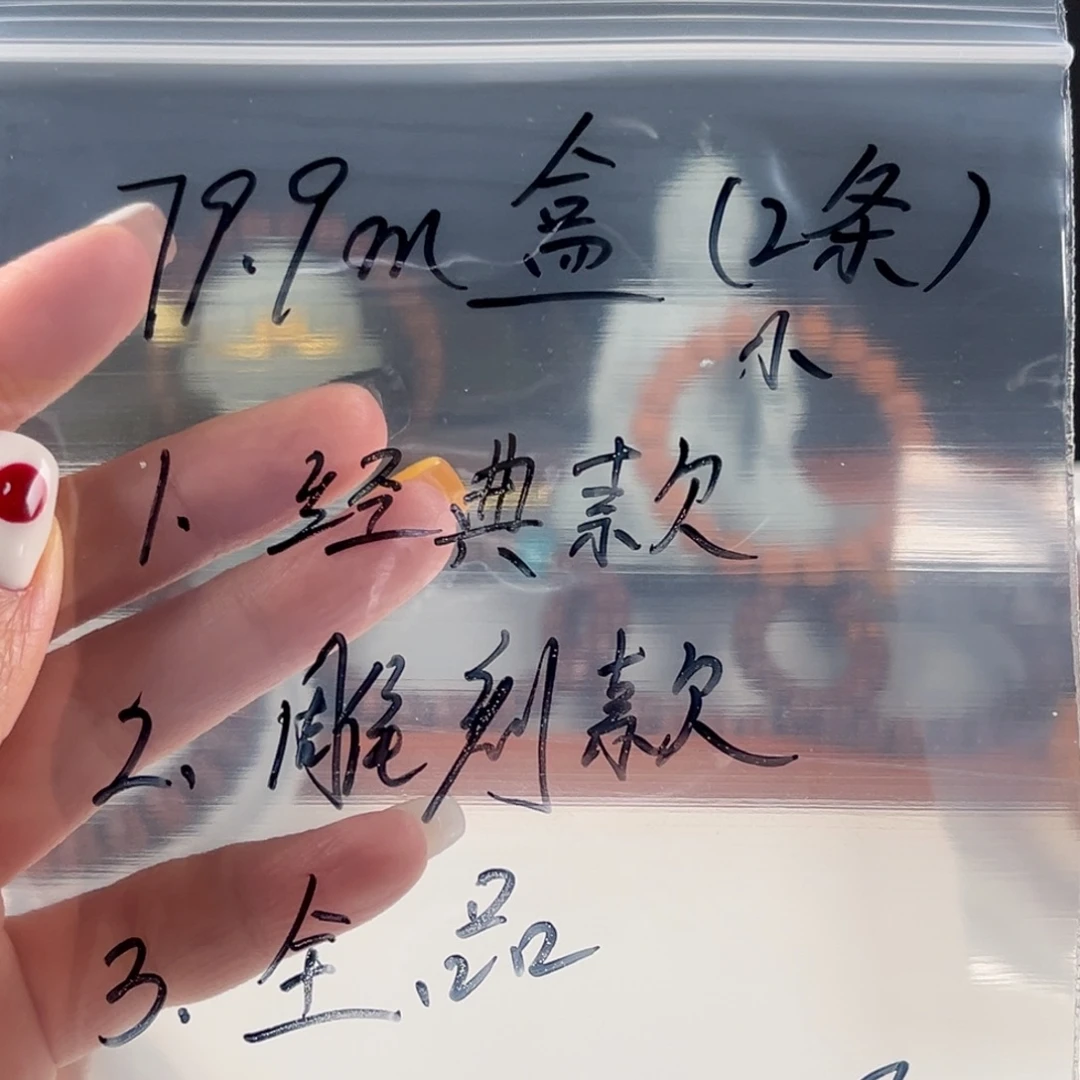 79.9m盒(2条)
小
1. 经典款
2. 雕刻款
3. 全品